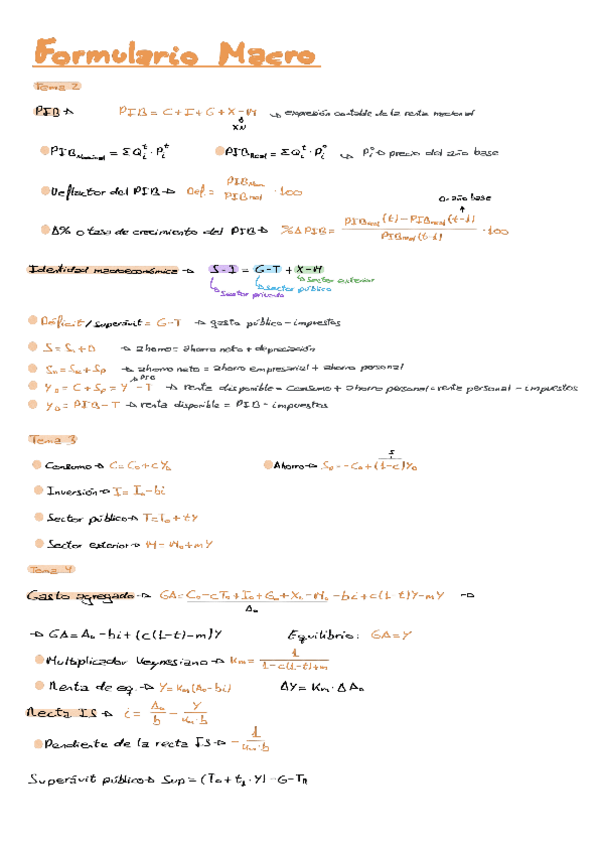 Formulario Macro
Tema 2
PIB → PIB = C + I + G + X - M → expresión contable de la renta nacional
XN
PIB Nominal = ΣQᵢᵗ · Pᵢᵗ PIB Real = ΣQᵢᵗ · Pᵢ⁰ → Pᵢ⁰ → precio del año base
Deflactor del PIB → Def. = PIB Nom / PIB real · 100
0 = año base
Δ% o tasa de crecimiento del PIB → %Δ PIB = PIB real (t) - PIB real (t-1) / PIB real (t-1) · 100
Identidad macroeconómica → S - I = G - T + X - M
sector exterior
sector público
sector privado
Déficit / superávit = G - T → gasto público - impuestos
S = Sn + D → ahorro = ahorro neto + depreciación
Sn = Se + Sp → ahorro neto = ahorro empresarial + ahorro personal
PIB
YD = C + Sp = Y - T → renta disponible = consumo + ahorro personal = renta personal - impuestos
YD = PIB - T → renta disponible = PIB - impuestos
Tema 3
s
Consumo → C = C₀ + cYD Ahorro → Sp = -C₀ + (1-c)YD
Inversión → I = I₀ - bi
Sector público → T = T₀ + tY
Sector exterior → M = M₀ + mY
Tema 4
Gasto agregado → GA = C₀ - cT₀ + I₀ + G₀ + X₀ - M₀ - bi + c(1-t)Y - mY →
A₀
→ GA = A₀ - bi + (c(1-t) - m)Y Equilibrio: GA = Y
Multiplicador keynesiano → Km = 1 / 1 - c(1-t) + m
Renta de eq. → Y = Km (A₀ - bi) ΔY = Km · ΔA₀
Recta IS → i = A₀ / b - Y / Km · b
Pendiente de la recta IS → - 1 / Km · b
Superávit público → Sup = (T₀ + t₁ · Y) - G - TR